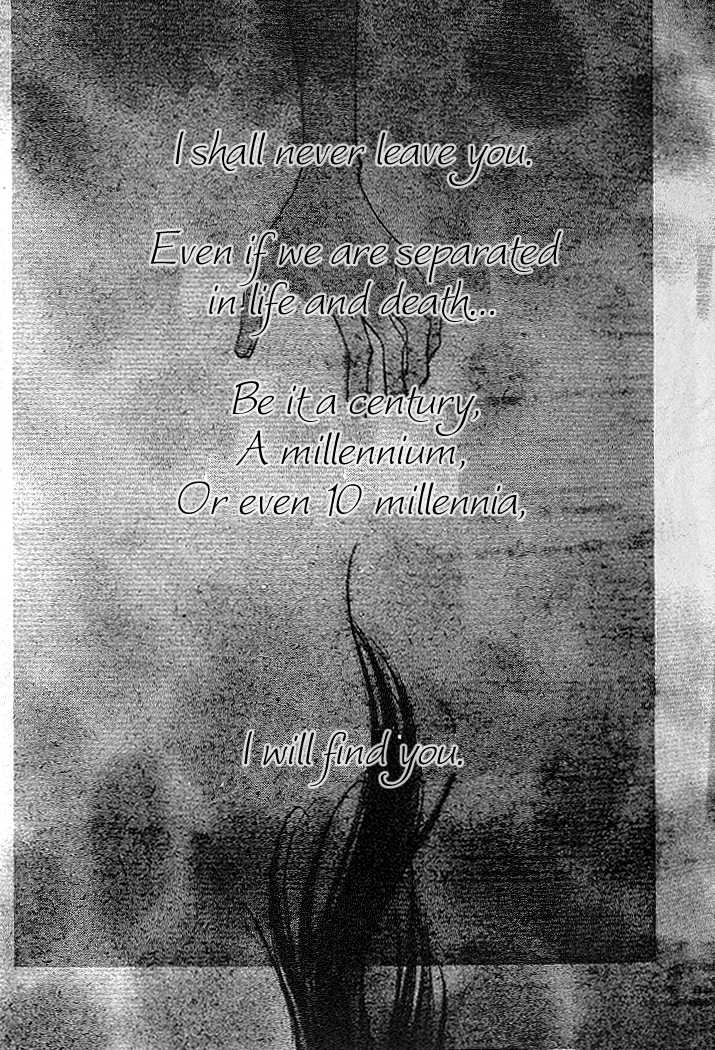 I shall never leave you.
Even if we are separated
in life and death...
Be it a century,
A millennium,
Or even 10 millennia,
I will find you.